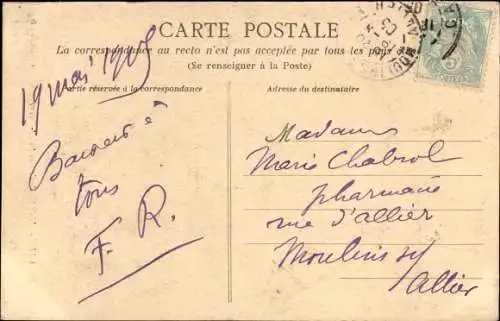 CARTE POSTALE
La correspondance au recto n'est pas acceptée par tous les pays
(Se renseigner à la Poste)
Partie réservée à la correspondance
Adresse du destinataire
19 mai 1908
à
tous
F. R.
Madame
Marie Chabrol
pharmacie
rue d'allier
Moulins s/
Allier